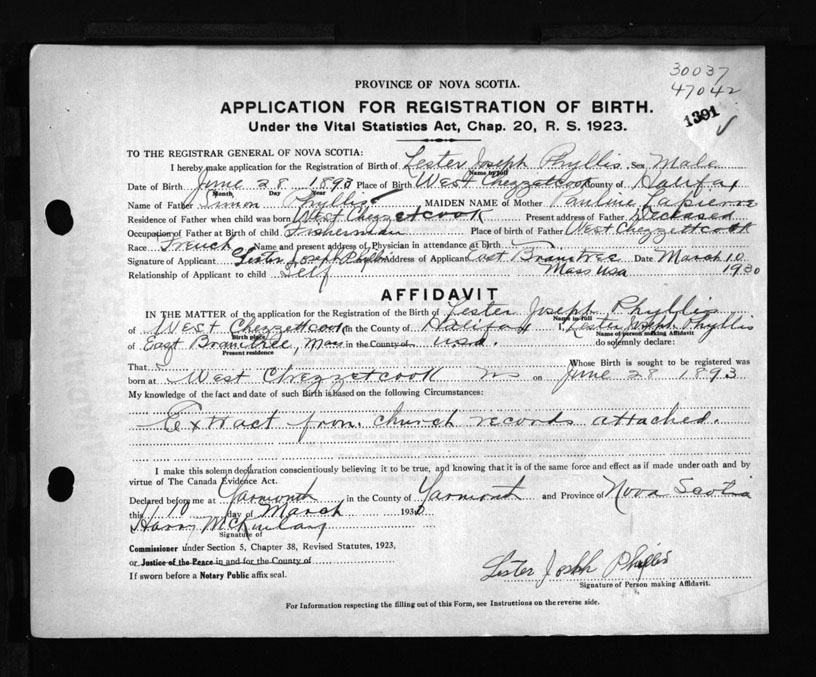 30037
47042
1391
PROVINCE OF NOVA SCOTIA.
APPLICATION FOR REGISTRATION OF BIRTH.
Under the Vital Statistics Act, Chap. 20, R. S. 1923.
TO THE REGISTRAR GENERAL OF NOVA SCOTIA:
I hereby make application for the Registration of Birth of Lester Joseph Phyllis Sex Male
Name in full
Date of Birth June 28 1893 Place of Birth West Chezzetcook County of Halifax
Month Day Year
Name of Father Simon Phyllis MAIDEN NAME of Mother Pauline Lapierre
Residence of Father when child was born West Chezzetcook Present address of Father Deceased
Occupation of Father at Birth of child Fisherman Place of birth of Father West Chezzettcook
Race French Name and present address of Physician in attendance at birth
Signature of Applicant Lester Joseph Phyllis Address of Applicant East Braintree Date March 10
Relationship of Applicant to child Self Mass USA 1930
AFFIDAVIT
IN THE MATTER of the application for the Registration of the Birth of Lester Joseph Phyllis
Name in full
of West Chezzettcook in the County of Halifax I, Lester Joseph Phyllis
Birth place Name of person making Affidavit
of East Braintree, Mass in the County of U.S.A. do solemnly declare:
Present residence
That Whose Birth is sought to be registered was
born at West Chezzetcook NS on June 28 1893
My knowledge of the fact and date of such Birth is based on the following Circumstances:
Extract from church records attached.
I make this solemn declaration conscientiously believing it to be true, and knowing that it is of the same force and effect as if made under oath and by
virtue of The Canada Evidence Act.
Declared before me at Yarmouth in the County of Yarmouth and Province of Nova Scotia
this 10 day of March 1930
Harry McKinlay
Signature of
Commissioner under Section 5, Chapter 38, Revised Statutes, 1923,
or Justice of the Peace in and for the County of
If sworn before a Notary Public affix seal.
Lester Joseph Phyllis
Signature of Person making Affidavit.
For Information respecting the filling out of this Form, see Instructions on the reverse side.